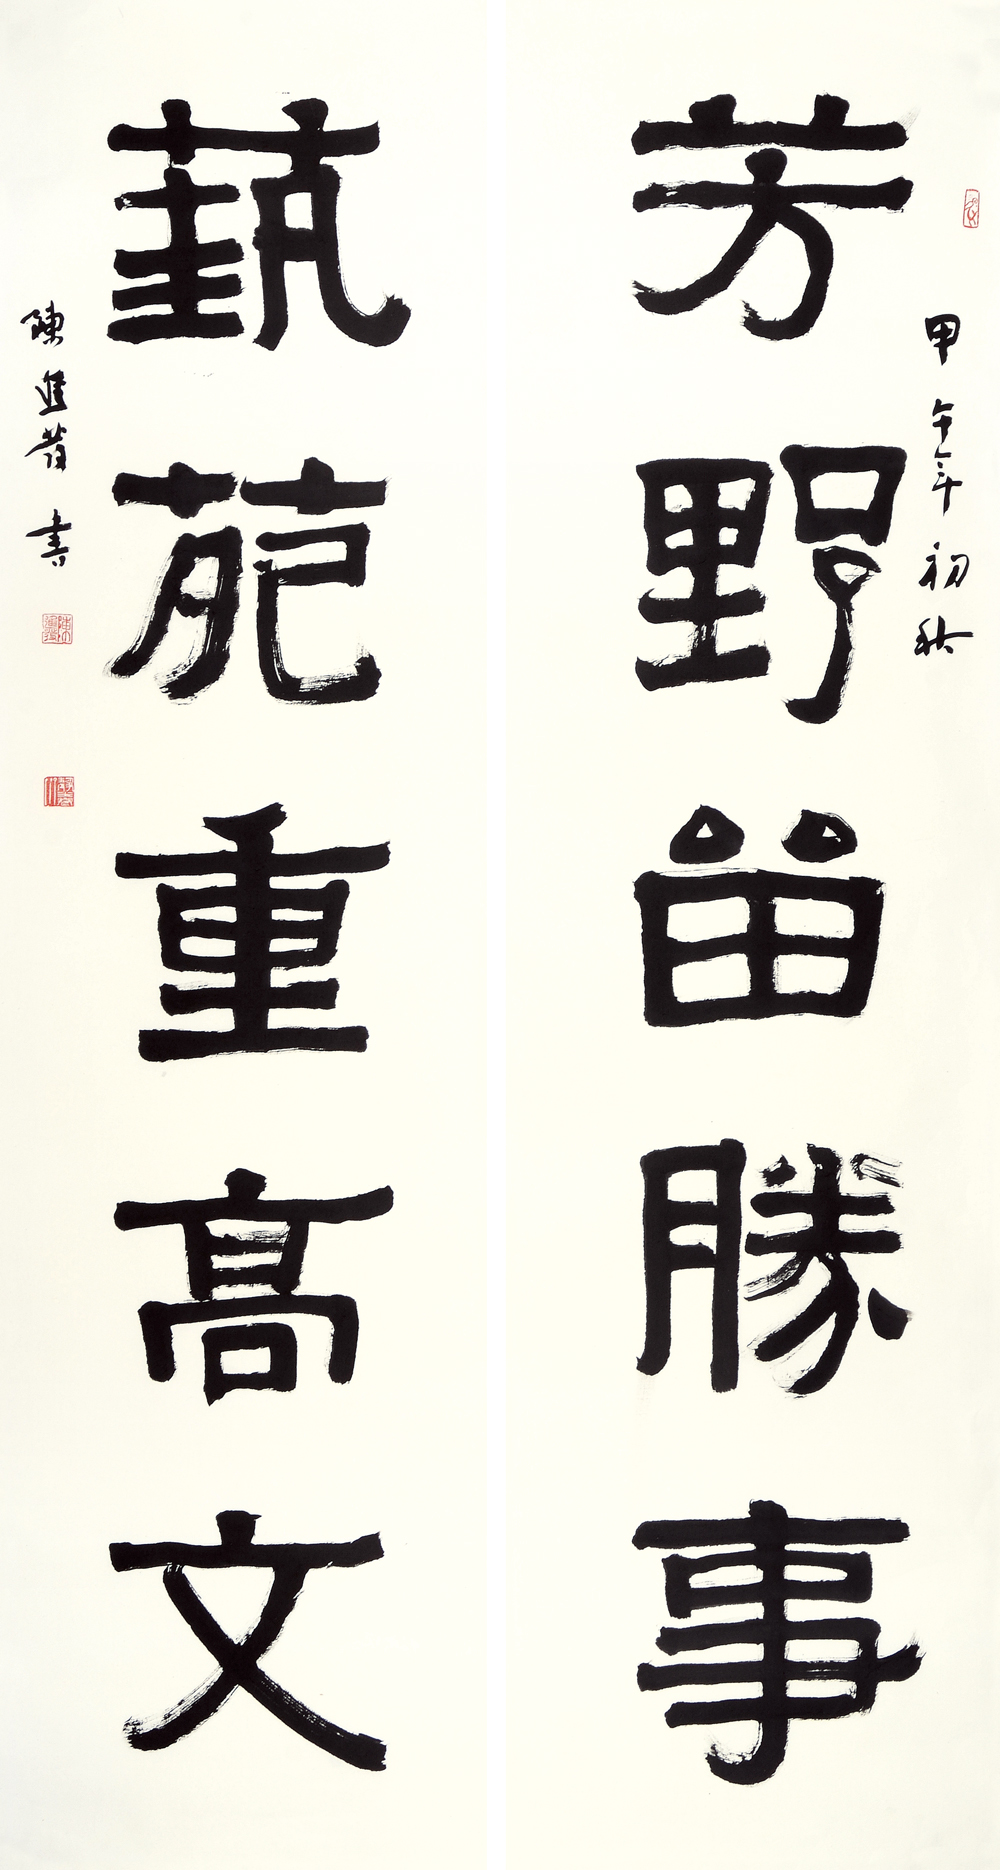 甲午年初秋
芳野留勝事
蓺苑重高文
陳進發書